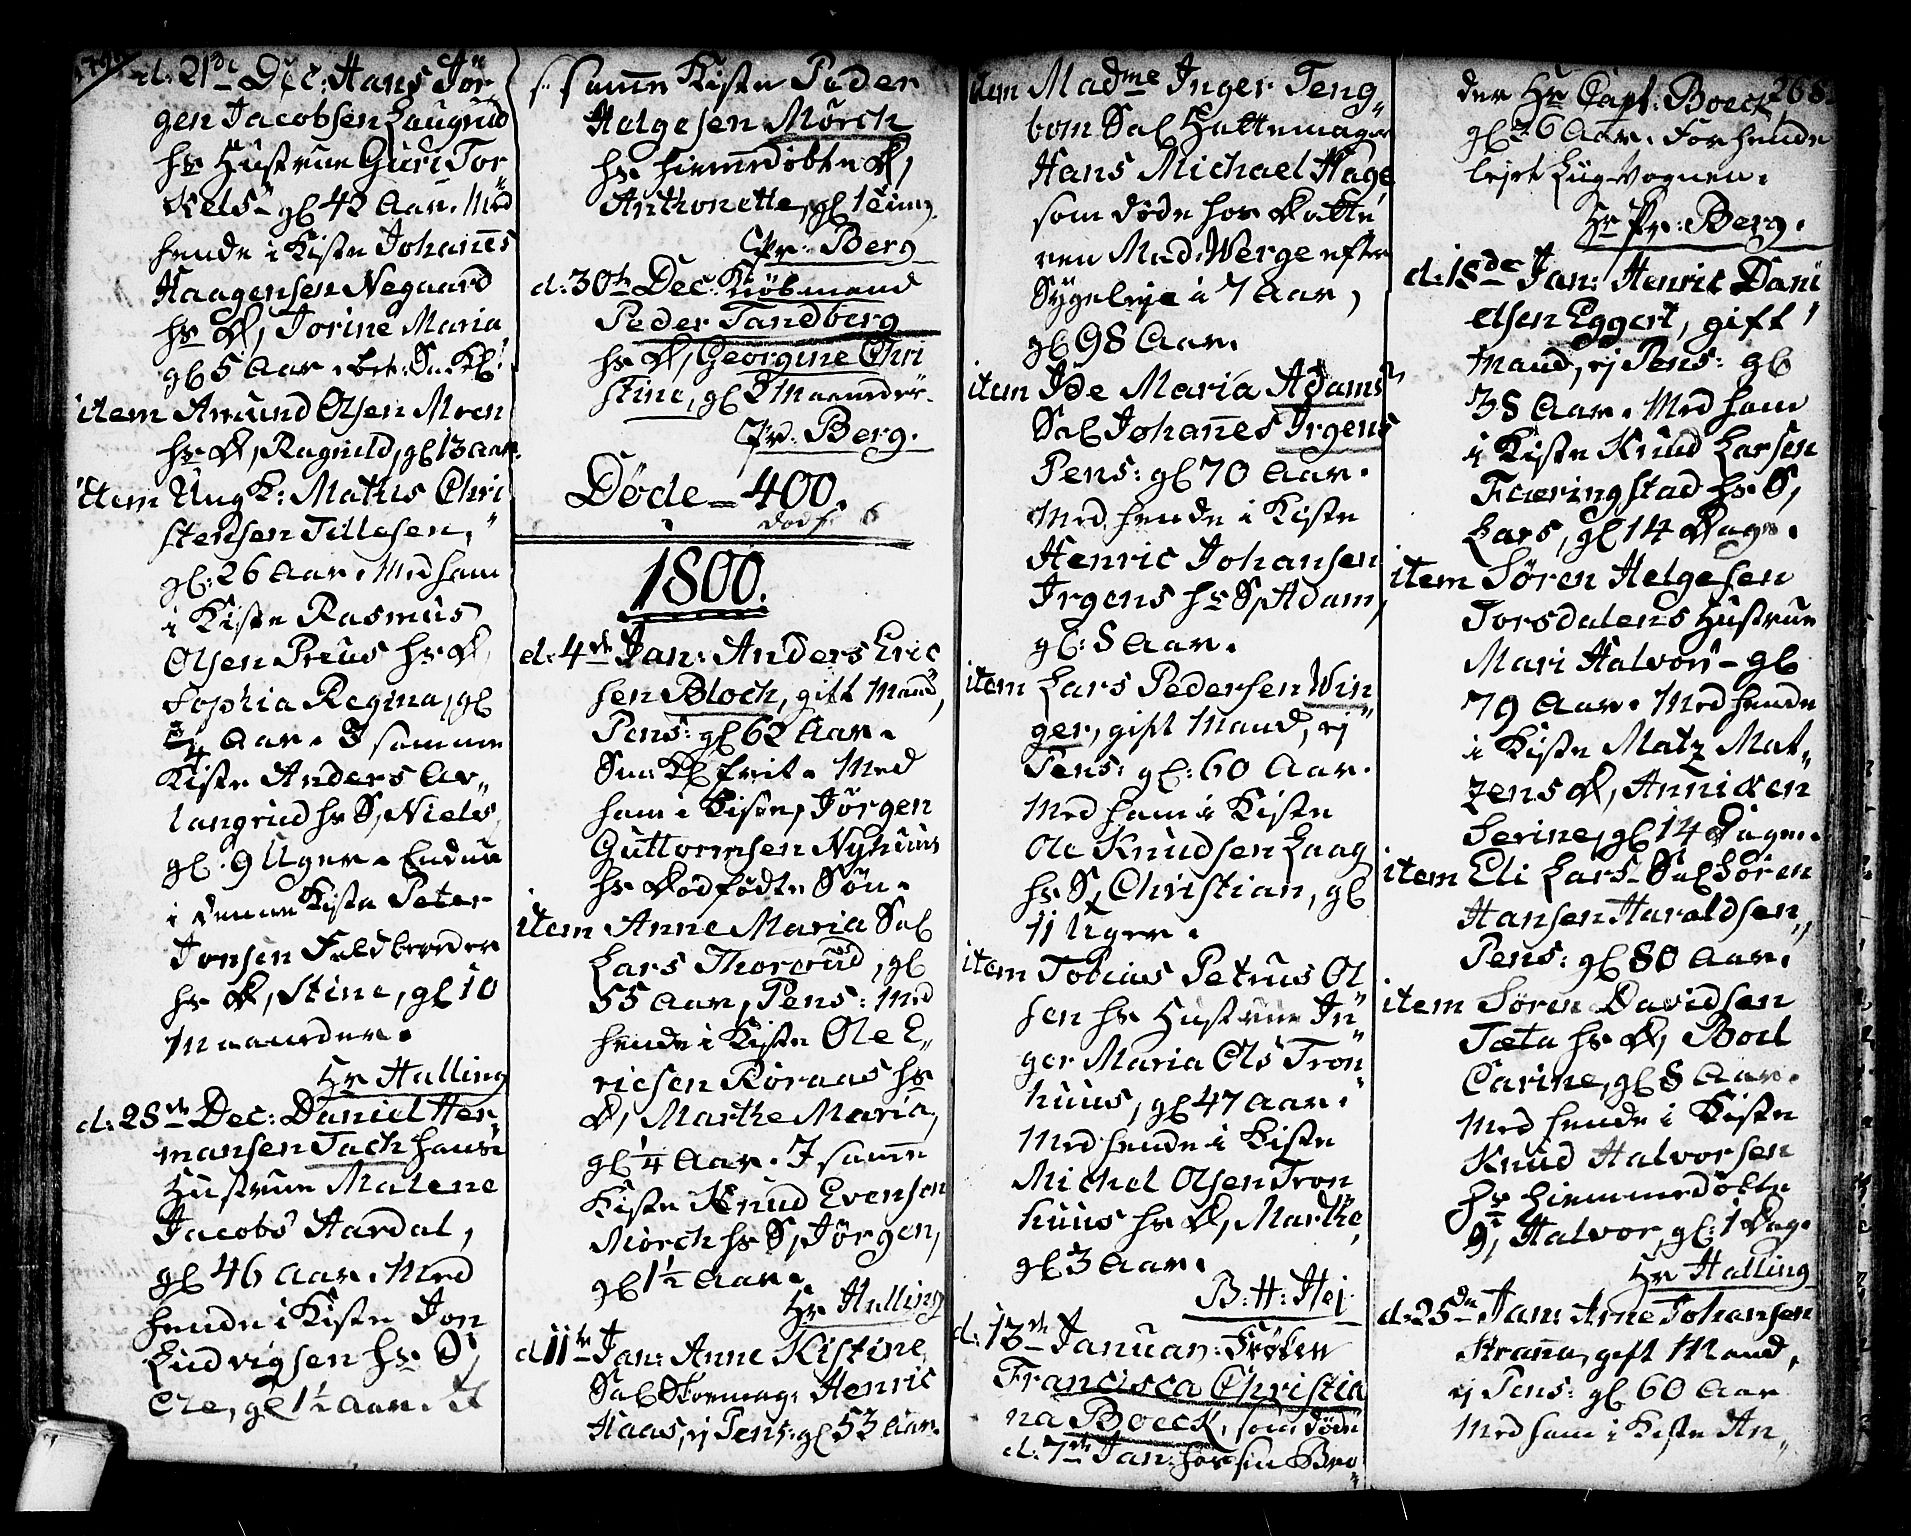 d. 21de Dec: Hans Jör
gen Jacobsen Laugrud
hs Hustrue Guri Tor
kels- gl 42 Aar. Med
hende i Kiste Johan̄es
Haagensen Negaard
hs D, Jorine Maria
gl 5 Aar. bet. Sa: Kl:
item Amund Olsen Moen
hs D, Ragnild, gl 13 aar.
item Ung K: Mathis Chri
stensen Tillesen,
gl: 26 Aar. Med ham
i Kiste Rasmus
Olsen Preus hs D,
Sophia Regina, gl
3/4 Aar. I samme
Kiste Anders Ar-
langrud hs S, Niels,
gl. 9 Uger. Endnu
i denne Kiste Peter
Jonsen Feldbereder
hs D, Stine, gl 10
Maaneder.
Hr Halling
d. 28de Dec: Daniel Her
mansen Tach hans
Hustrue Malene
Jacobs Aardal,
gl 46 aar. Med
hende i Kiste Jon
Ludvigsen hs S,
Ole, gl 1½ Aar. It
s. sam̄e Kiste Peder
Helgesen Mörch
hs hiem̄edøbte D,
Anthonette, gl 1 time.
Pr: Berg
d: 30te Dec: Kiöbmand
Peder Tandberg
hs D, Georgine Chri
stine, gl 2 Maaneder.
Pr: Berg.
Døde - 400.
dødf: 6
1800.
d. 4de Jan: Anders Eric
sen Bloch, gift Mand,
Pens: gl 62 Aar.
Sa: Kl frit. Med
ham i Kiste, Jörgen
Guttormsen Nyhuus
hs dødfødte Søn.
item Anne Maria Sal
Lars Thorerud, gl
55 Aar, Pens: Med
hende i Kiste Ole E-
ricsen Röraas hs
D, Marthe Maria,
gl ¼ Aar. I sam̄e
Kiste Knud Evensen
Mörch hs S, Jörgen,
gl 1½ Aar.
Hr Halling
d. 11te Jan: Anne Kistine
Sal Skomag: Henric
Haas, ej Pens: gl 53 Aar.
item Madme Inger Teng
bom Sal Hattemager
Hans Michael Hage
som døde hos Datte
ren Mad. Werge efter
Sygeleje i 7 Aar,
gl 98 Aar.
item Ide Maria Adams
Sal Johan̄es Irgens
Pens: gl 70 Aar.
Med hende i Kiste
Henric Johansen
Irgens hs S, Adam,
gl: 8 Aar.
item Lars Pedersen Win
ger, gift Mand, ej
Pens: gl: 60 Aar.
Med ham i Kiste
Ole Knudsen Laag
hs S, Christian, gl
11 Uger.
item Tobias Petrus Ol
sen hs Hustrue In
ger Maria Ols Tron
huus, gl 47 Aar.
Med hende i Kiste
Michel Olsen Tron
huus hs D, Marthe,
gl 3 Aar.
B: H: Hej
d. 13de Januar: Frøken
Francisca Christia
na Boeck, som døde
d. 7de Jan: hos sin Bro
268.
der Hr Capt: Boeck
gl 26 Aar. For hende
lejet Liig-Vognen.
Hr Pr: Berg.
d. 18de Jan: Henric Dani
elsen Eggert, gift
Mand, ej Pens: gl
38 Aar. Med ham
i Kiste Knud Larsen
Fæeringstad hs S,
Lars, gl 14 Dage.
item Søren Helgesen
Torsdalens Hustrue
Mari Halvors- gl
79 Aar. Med hende
i Kiste Matz Mat-
zens D, Anniken
Serine, gl 14 Dage.
item Eli Lars- Sal Søren
Hansen Haraldsen,
Pens: gl 80 Aar.
item Søren Davidsen
Tæta hs D, Boel
Carine, gl 8 Aar.
Med hende i Kiste
Knud Halvorsen
hs hiemmedøbte
S, Halvor, gl: 1 Dag.
Hr Halling
d. 25de Jan: Arne Johansen
Kran̄a, gift Mand,
ej Pens: gl 60 Aar
Med ham i Kiste An-